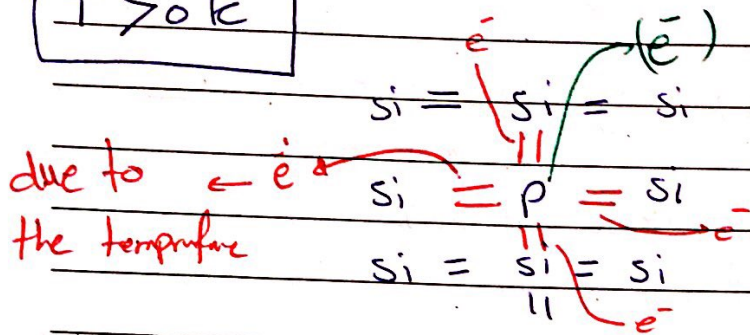 T > 0 k
e⁻ (e⁻)
si = si = si
||
due to ← e⁻ si = P = si
the temprature e⁻
||
si = si = si
||
e⁻